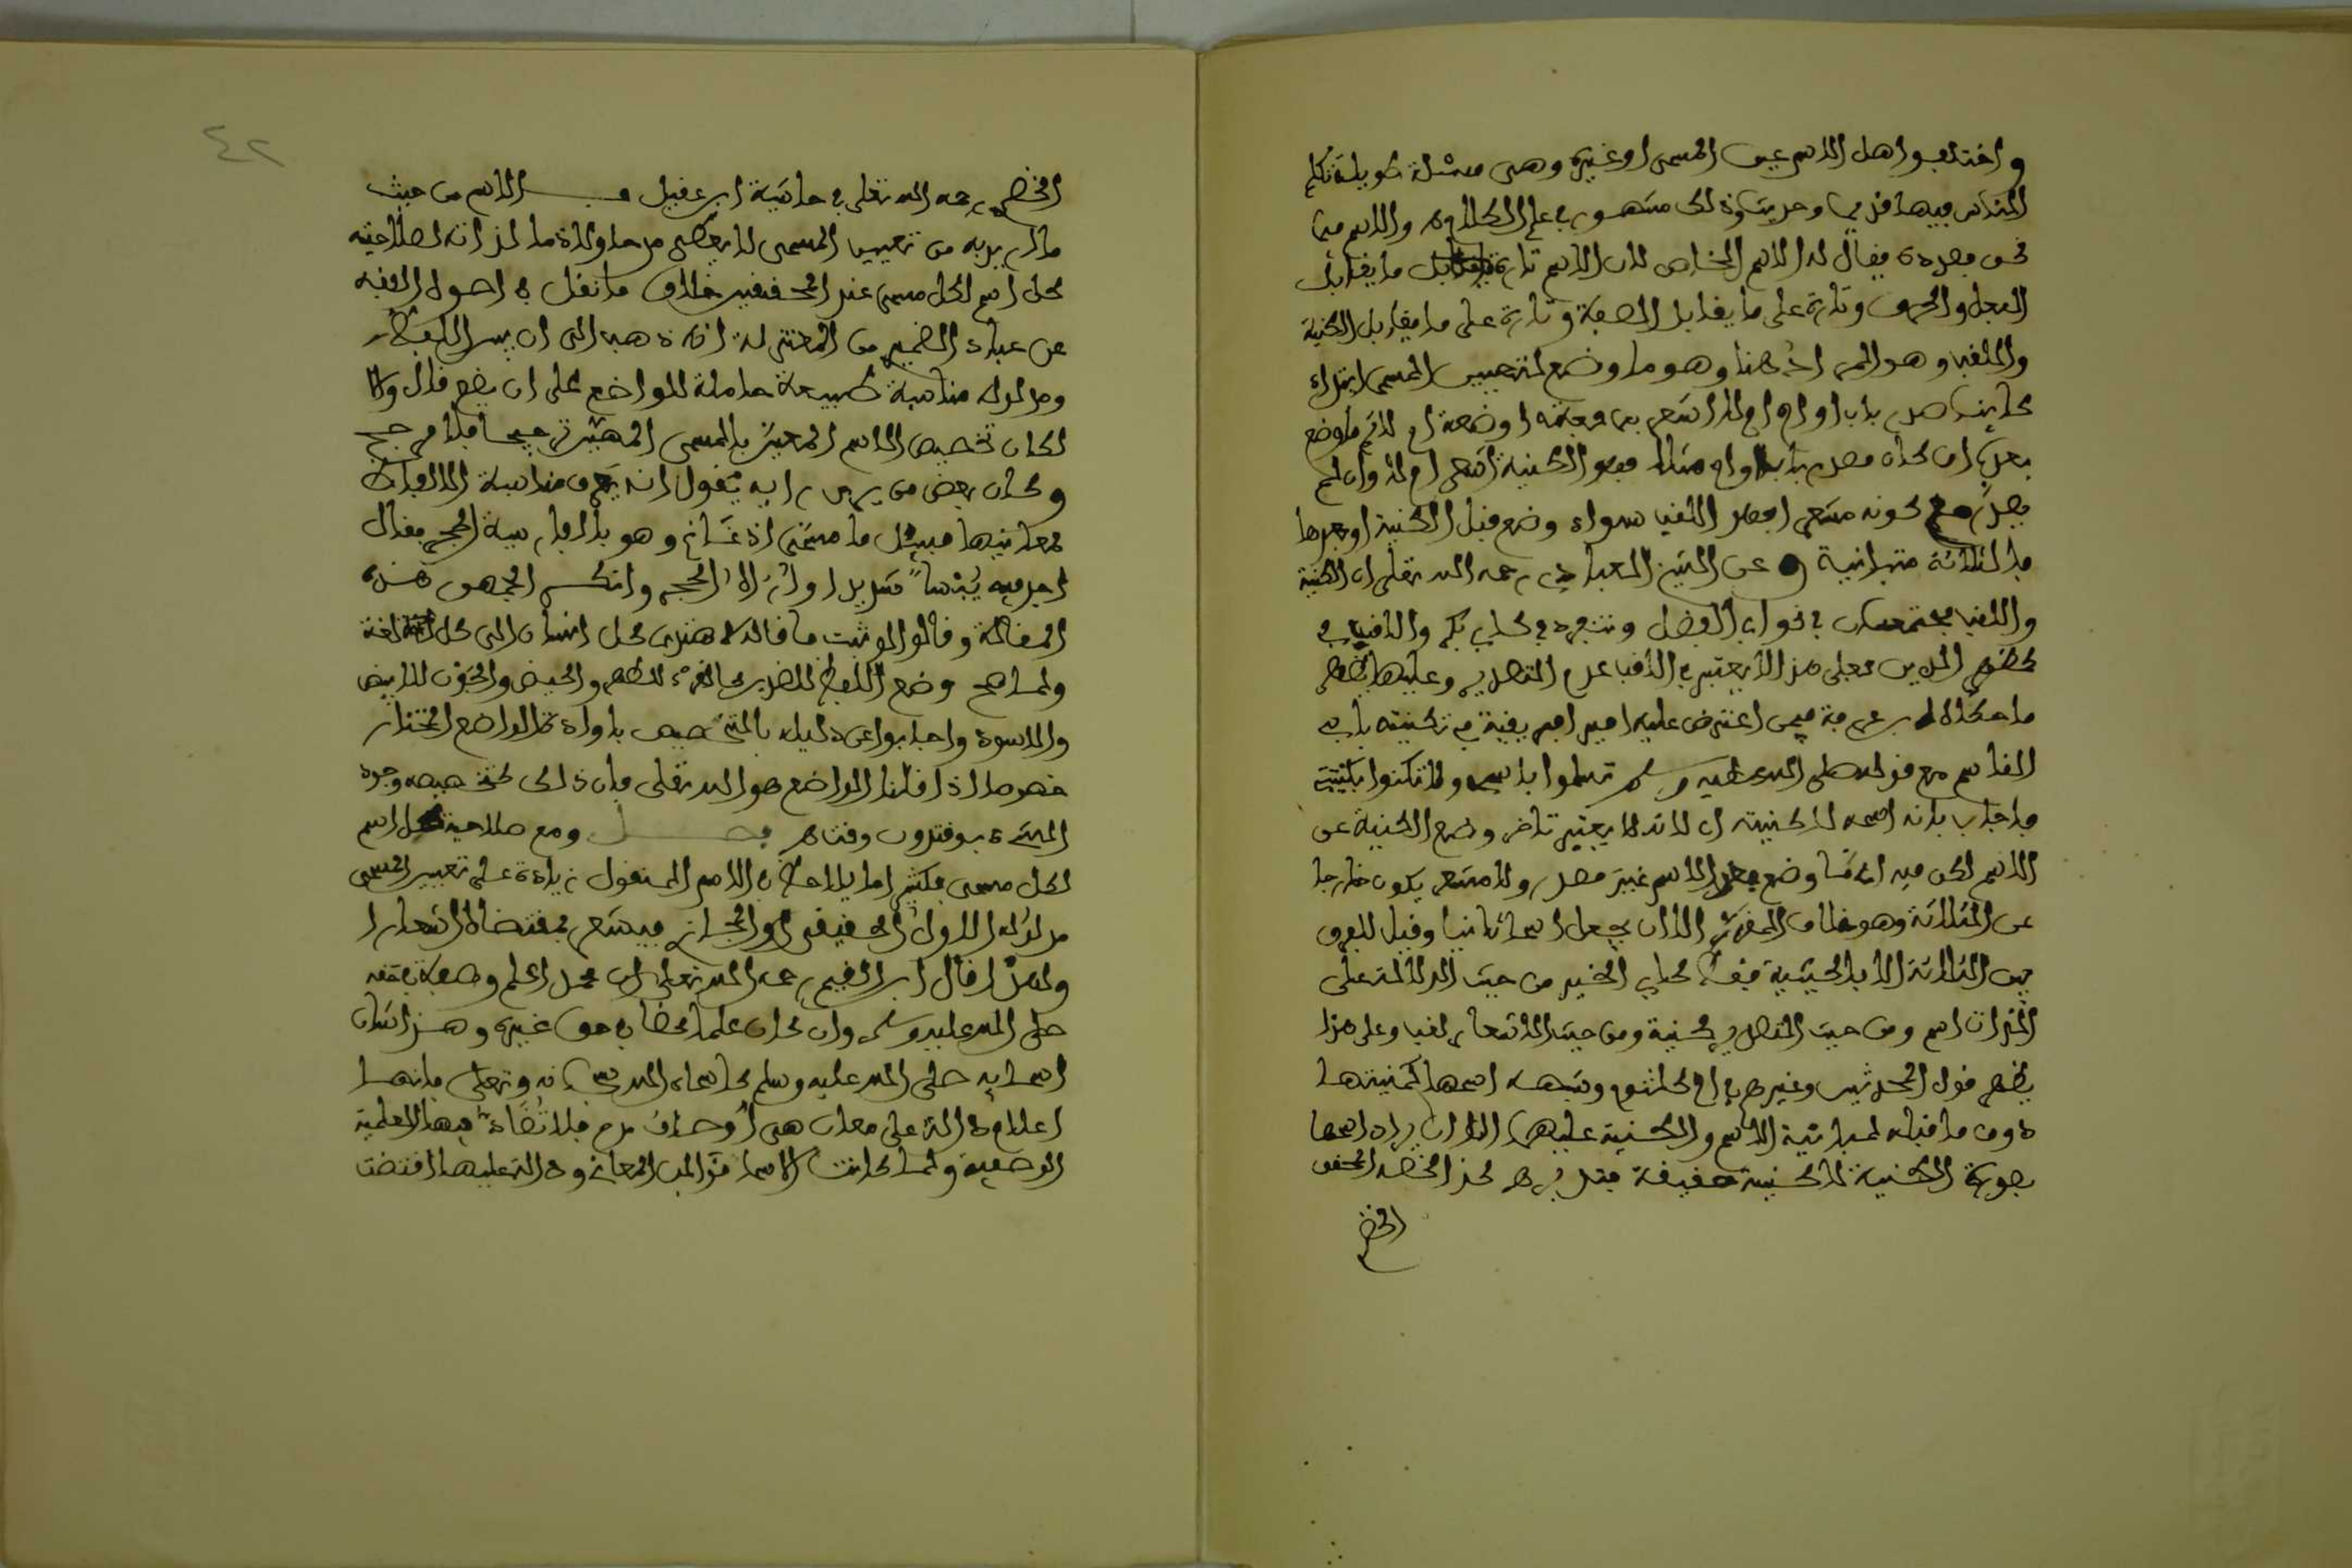 واختلفوا هل الاسم عين المسمى او غيره وهى مسئلة طويلة تكلم
الناس فيها قديما وحديثا وذلك مشهور فى علم الكلام والاسم فيما
نحن بصدده يقال له الاسم الخاص لان الاسم تارة يقابل ما يقابل
الفعل والحرف وتارة على ما يقابل الصفة وتارة على ما يقابل الكنية
واللقب وهو المراد هنا وهو ما وضع لتعيين المسمى ابتداء
كاينا صدر باب او ام ام لا اشعر برفعته او ضعته ام لا ثم ما وضع
بعد ان كان مصدرا باب او ام مثلا فهو الكنية اشعر ام لا وان لم
يصدر مع كونه مشعرا فهو اللقب سواء وضع قبل الكنية او بعدها
فالثلاثة متباينة وعن الشيخ العبادي رحمه الله تعالى ان الكنية
واللقب يجتمعان فى نحو ابى الفضل وتنفرد فى كابي بكر واللقب فى
كمظهر الدين فعلى هذا لا يعتبر فى اللقب عدم التصدير وعليهما يظهر
ما حكاه ابن عرفة فيمن اعترض عليه امير افريقية فى تكنيته بابى
القاسم مع قوله صلى الله عليه وسلم تسموا باسمى ولا تكنوا بكنيتى
فاجاب بانه اسمه لا كنيته اى لانه لا يعتبر تاخر وضع الكنية عن
الاسم لكن فيه ان ما وضع بعد الاسم غير مصدر ولا مشعر يكون خارجا
عن الثلاثة وهو خلاف المقرر الا ان يجعل اسما ثانيا وقيل لا فرق
بين الثلاثة الا بالحيثية فقط كابي الخير من حيث الدلالة على
الذات اسم ومن حيث التصدير كنية ومن حيث الاشعار لقب وعلى هذا
يظهر قول المحدثين وغيرهم فى ام كلثوم وشبهه اسمها كنيتها
دون ما قبله لمباينة الاسم والكنية عليهما الا ان يراد اسمها
بصورة الكنية لا كنية حقيقة فتدبره كذا لخصه المحقق
الخضرى
الخضرى رحمه الله تعالى فى حاشية ابن عقيل الاسم من حيث
ما اريد به من تعيين المسمى لا يقتضى مدحا ولا ذما لذاته لصلاحية
كل اسم لكل مسمى عند المحققين خلاف ما نقل فى اصول الفقه
عن عباد الضميرى من المعتزلة انه ذهب الى ان بين اللفظ
ومدلوله مناسبة طبيعة حاملة للواضع على ان يضع قال والا
لكان تخصيص الاسم المعين بالمسمى المعين ترجيحا بلا مرجح
وكان بعض من يرى رايه يقول انه يعرف مناسبة الالفاظ
لمعانيها فسئل ما مسمى اذغاغ وهو بالفارسية الحجر فقال
اجد فيه يبسا شديدا واراه الحجر وانكر الجمهور هذه
المقالة وقالوا لو ثبت ما قاله لاهتدى كل انسان الى كل لغة
ولما صح وضع اللفظ للضدين كالقرء للطهر والحيض والجون للابيض
والاسود واجابوا عن دليله بالتخصيص بارادة الواضع المختار
خصوصا اذا قلنا الواضع هو الله تعالى فان ذلك كتخصيصه وجود
الشىء بوقت دون وقت فصل ومع صلاحية كل اسم
لكل مسمى فكثيرا ما يلاحظ فى الاسم المنقول زيادة على تعيين المسمى
مدلوله الاول الحقيقى او المجازى فيشعر بمقتضاه اشعارا
ولهذا قال ابن القيم رحمه الله تعالى ان محمدا علم وصفة فى حقه
صلى الله عليه وسلم وان كان علما محضا فى حق غيره وهذا شان
اسمايه صلى الله عليه وسلم كاسماء الله سبحانه وتعالى فانها
اعلام دالة على معان هى اوصاف مدح فلا تضاد فيها العلمية
الوصفية ولما كانت الاسما قوالب المعانى ودالة عليها اقتضت
٤٢